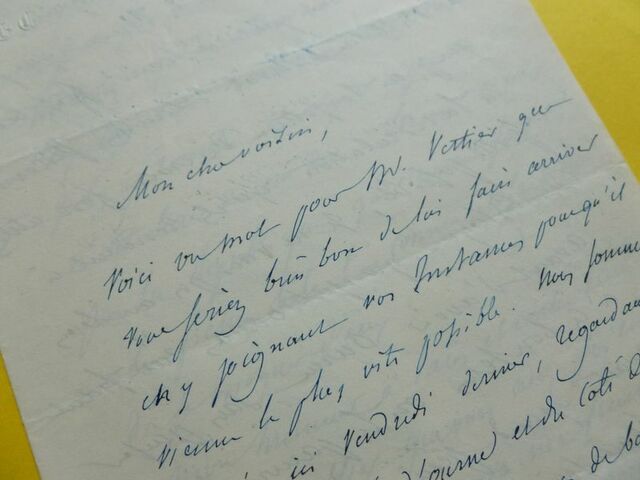 Mon cher voisin,
Voici un mot pour Mr. Vettier que
vous seriez bien bon de lui faire arriver
en y joignant vos Instances pourqu'il
vienne le plus vite possible. Nous somme
ici Vendredi dernier, regardan
et du côté d
de